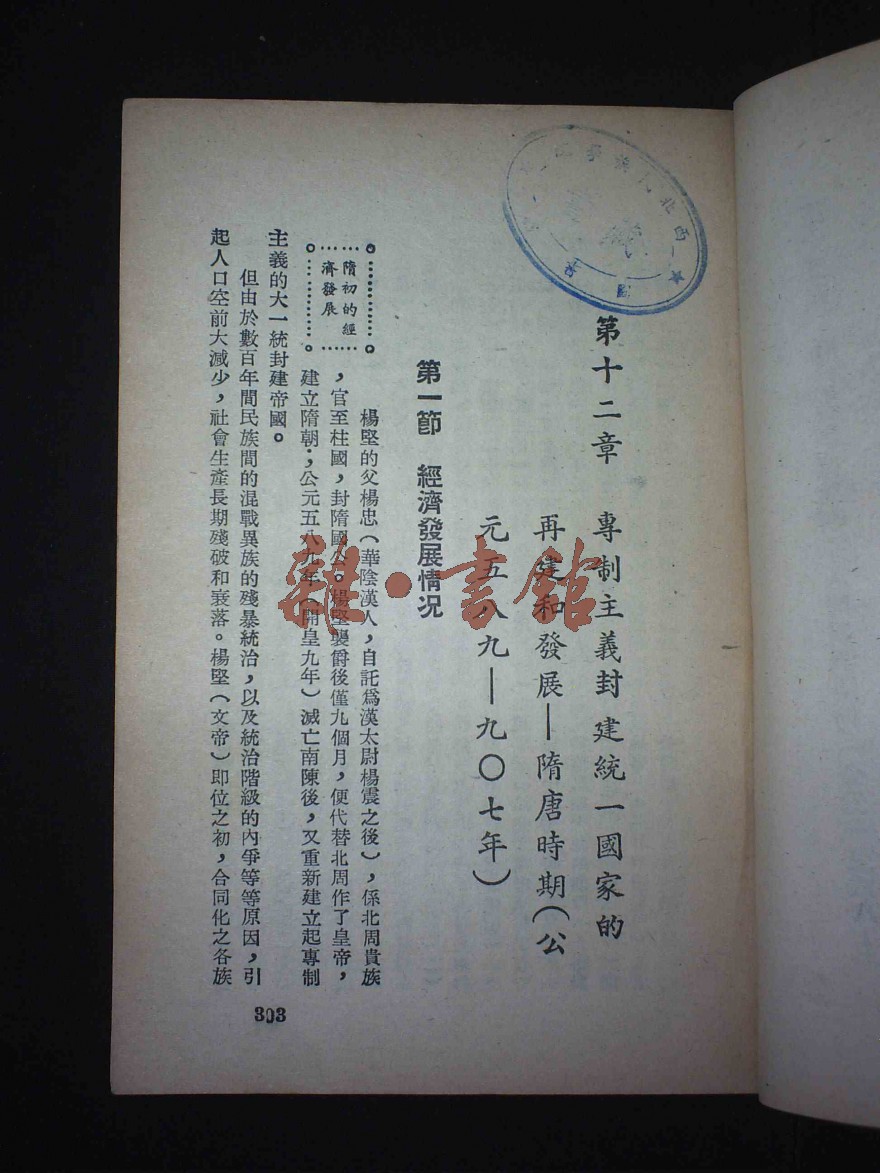 第十二章　專制主義封建統一國家的
再建和發展—隋唐時期（公
元五八九—九〇七年）
第一節　經濟發展情况
隋初的經
濟發展
楊堅的父楊忠（華陰漢人，自託爲漢太尉楊震之後），係北周貴族
，官至柱國，封隋國公。楊堅襲爵後僅九個月，便代替北周作了皇帝，
建立隋朝；公元五八九年（開皇九年）滅亡南陳後，又重新建立起專制
主義的大一統封建帝國。
但由於數百年間民族間的混戰異族的殘暴統治，以及統治階級的內爭等等原因，引
起人口空前大減少，社會生產長期殘破和衰落。楊堅（文帝）即位之初，合同化之各族
303
雜·書館